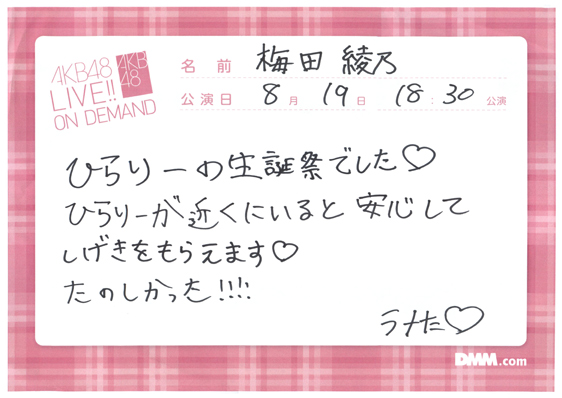 AKB48
LIVE!!
ON DEMAND
AKB
48
名前 梅田 綾乃
公演日 8月 19日 18:30 公演
ひらりーの生誕祭でした♡
ひらりーが近くにいると安心して
しげきをもらえます♡
たのしかった!!!!
うめた♡
DMM.com